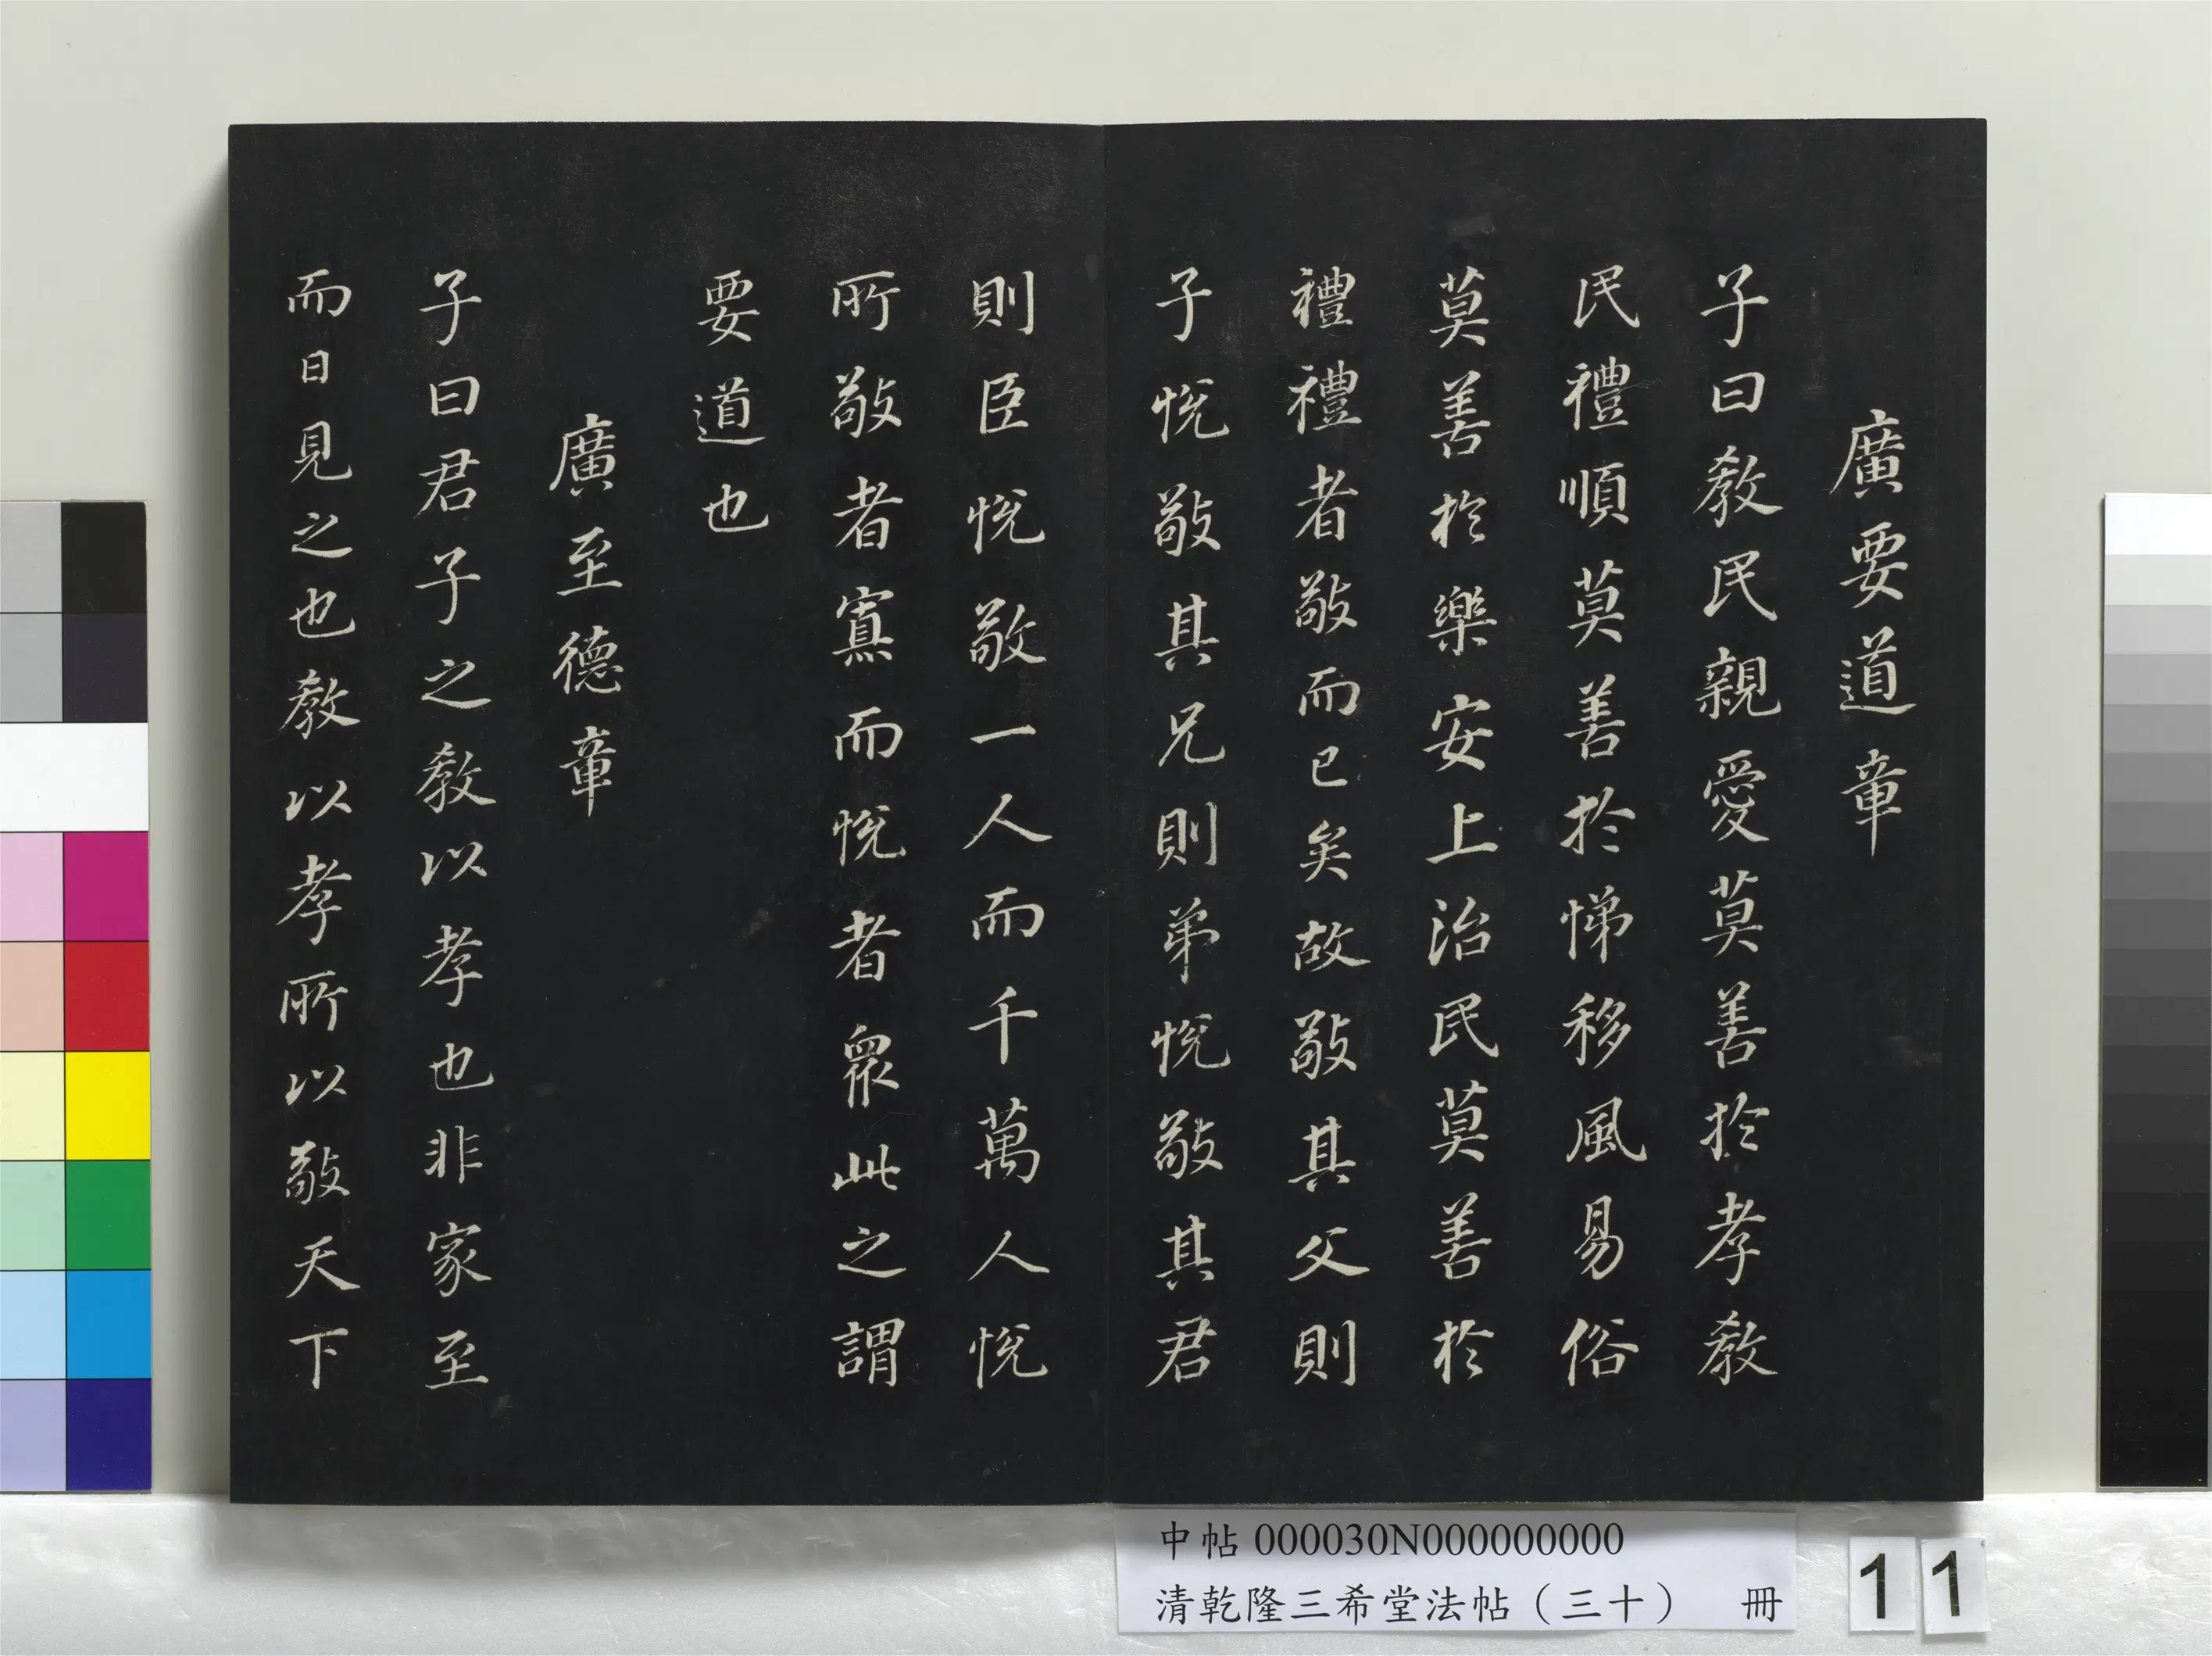 廣要道章
子曰教民親愛莫善於孝教
民禮順莫善於悌移風易俗
莫善於樂安上治民莫善於
禮禮者敬而已矣故敬其父則
子悅敬其兄則弟悅敬其君
則臣悅敬一人而千萬人悅
所敬者寡而悅者眾此之謂
要道也
廣至德章
子曰君子之教以孝也非家至
而日見之也教以孝所以敬天下
中帖 000030N000000000
清乾隆三希堂法帖（三十） 冊
11